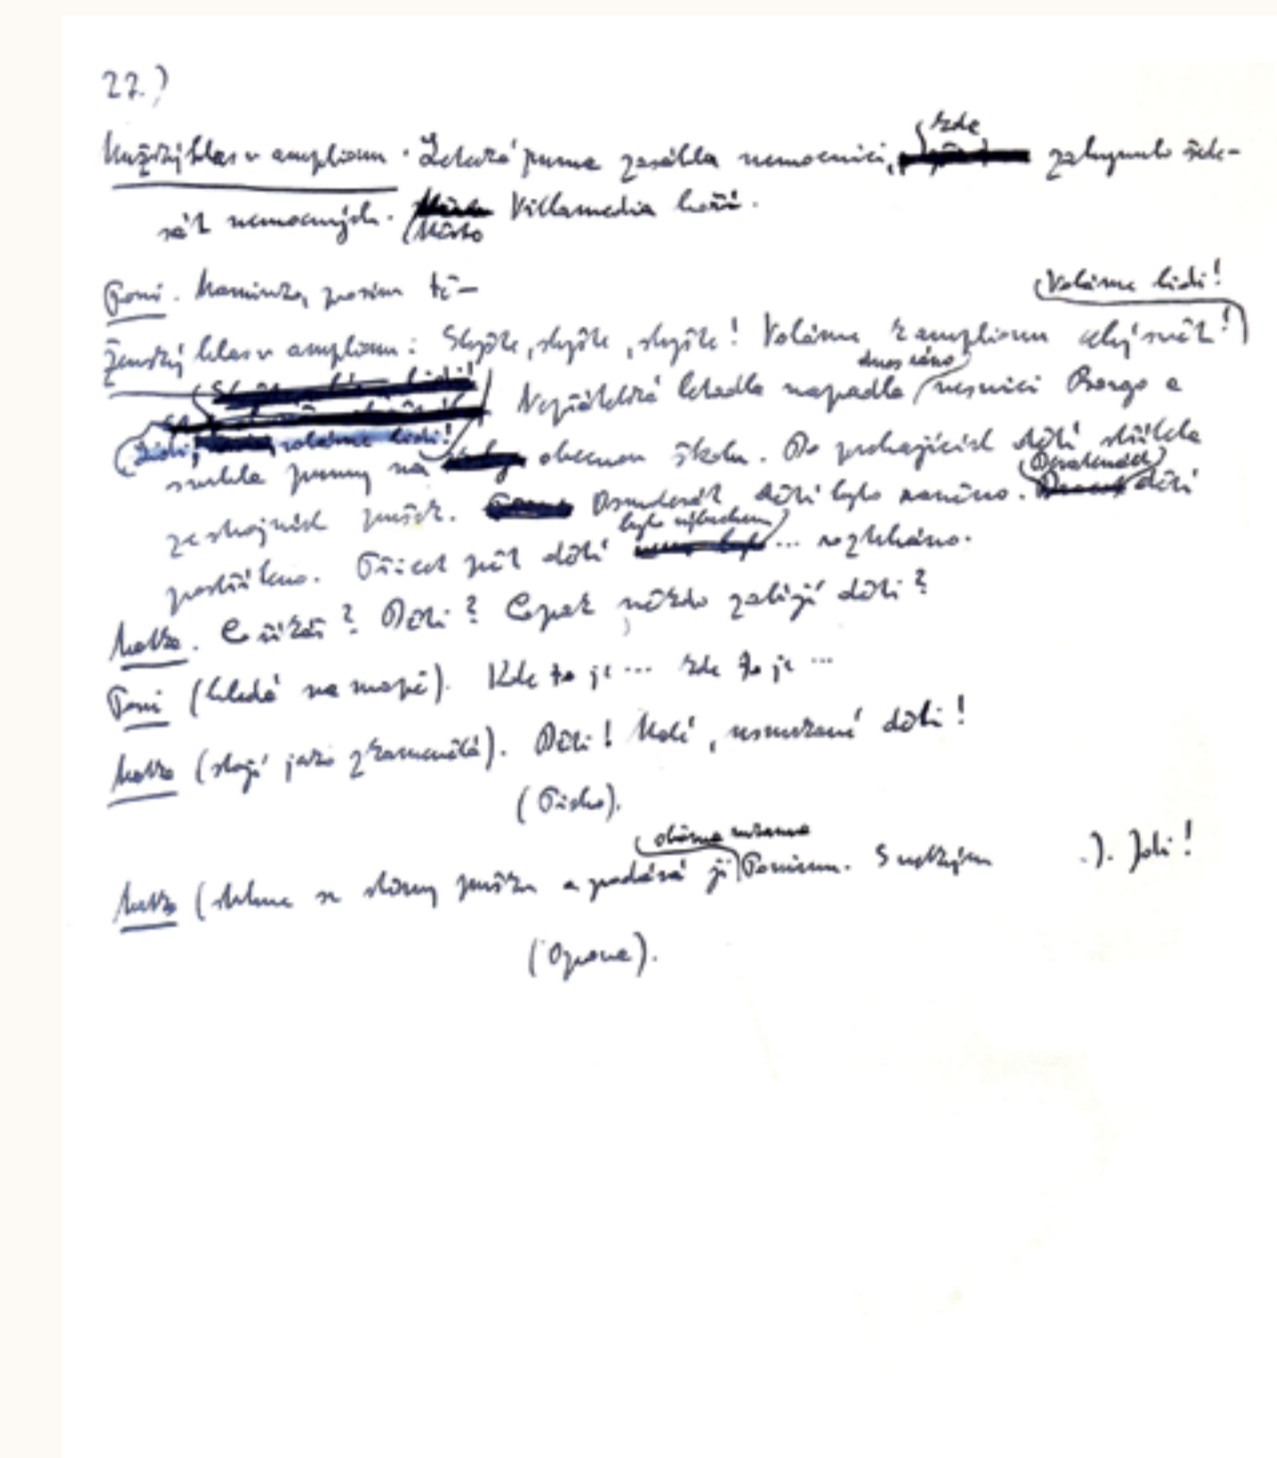 22.)
Mužský hlas v amplionu. Letecká puma zasáhla nemocnici, zde zahynulo šede-
sát nemocných. Město Villamedia hoří.
Toni. Maminko, prosím tě–
Ženský hlas v amplionu: Slyšte, slyšte, slyšte! Voláme k amplionu celý svět! Voláme lidi!
Lidi, voláme lidi! Nepřátelská letadla napadla dnes ráno vesnici Borgo a
svrhla pumy na obecnou školu. Do prchajících dětí střílela
ze strojních pušek. Osmdesát dětí bylo raněno. Devatenáct dětí
postříleno. Třicet pět dětí bylo výbuchem ... roztrháno.
Matka. Co říkáš? Děti? Copak někdo zabíjí děti?
Toni (hledá na mapě). Kde to je ... kde to je ...
Matka (stojí jako zkamenělá). Děti! Malé, usmrkané děti!
(Ticho).
Matka (strhne se stěny pušku a podává ji oběma rukama Tonimu. S velkým ). Jdi!
(Opona).